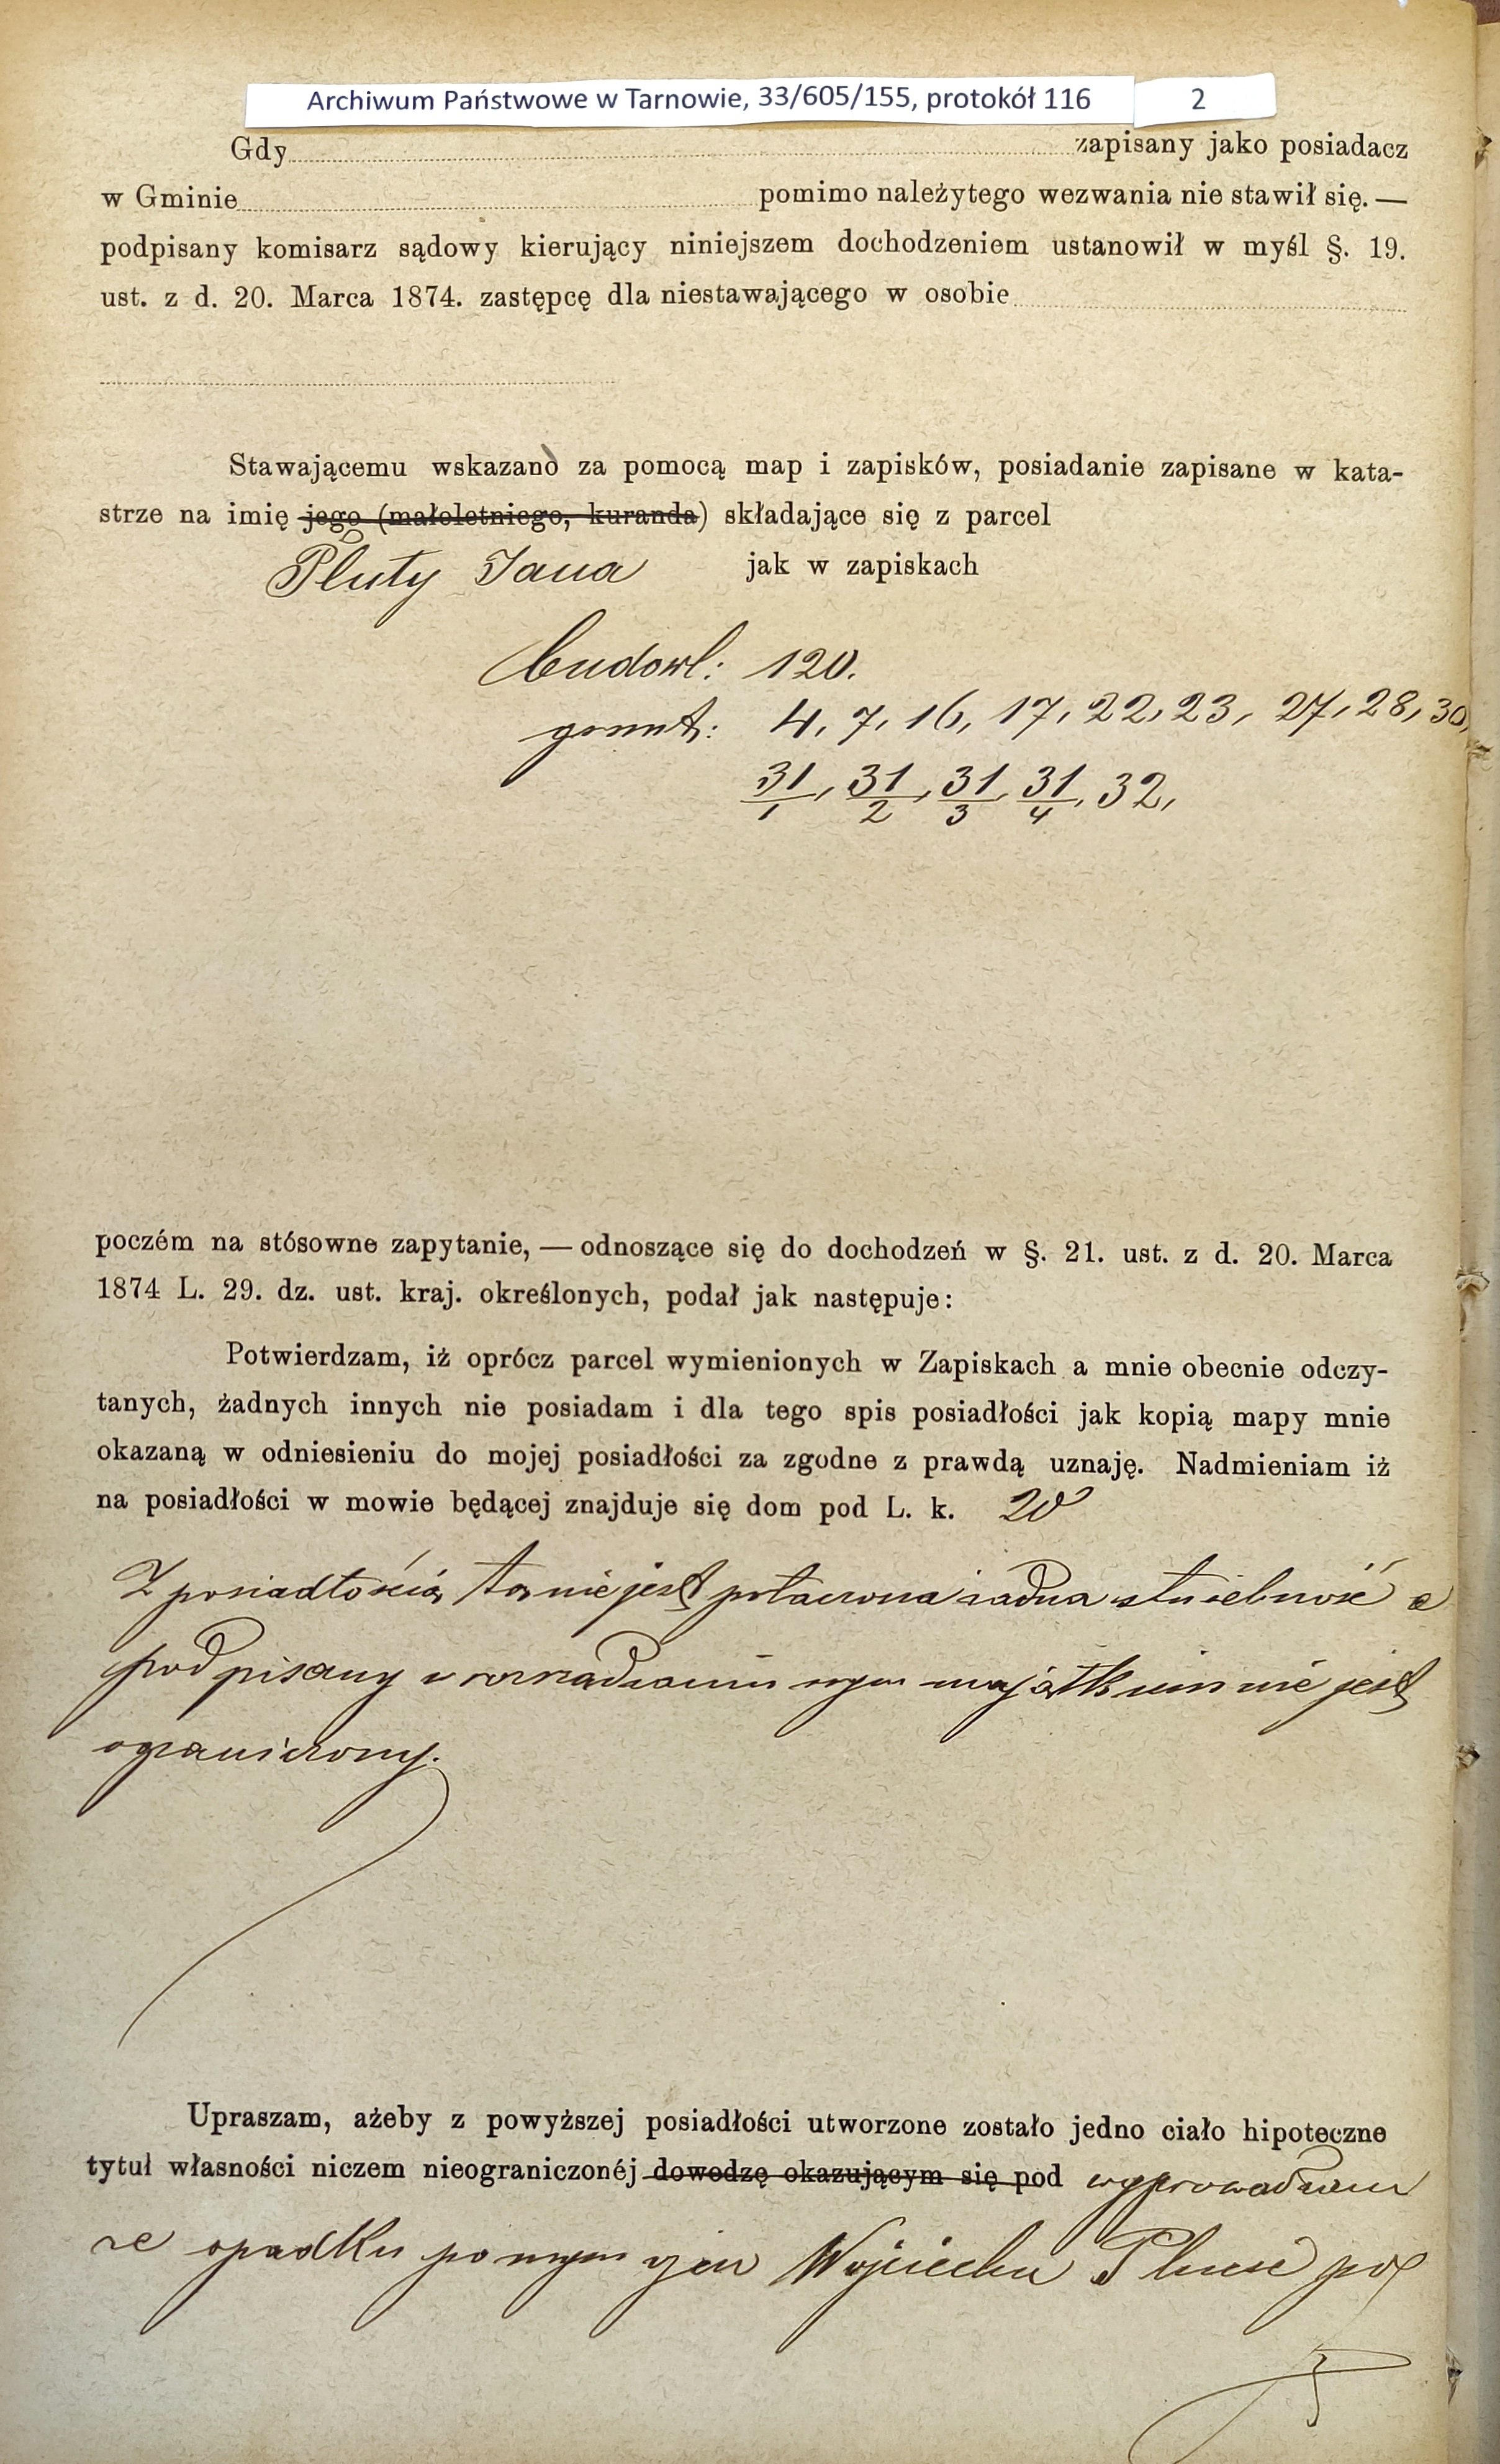 Archiwum Państwowe w Tarnowie, 33/605/155, protokół 116 2
Gdy zapisany jako posiadacz
w Gminie pomimo należytego wezwania nie stawił się. —
podpisany komisarz sądowy kierujący niniejszem dochodzeniem ustanowił w myśl §. 19.
ust. z d. 20. Marca 1874. zastępcę dla niestawającego w osobie
Stawającemu wskazano za pomocą map i zapisków, posiadanie zapisane w kata-
strze na imię jego (małoletniego, kuranda) składające się z parcel
Pluty Jana jak w zapiskach
budowl: 120.
grunt: 4, 7, 16, 17, 22, 23, 27, 28, 30,
31/1, 31/2, 31/3, 31/4, 32,
poczém na stósowne zapytanie, — odnoszące się do dochodzeń w §. 21. ust. z d. 20. Marca
1874 L. 29. dz. ust. kraj. określonych, podał jak następuje:
Potwierdzam, iż oprócz parcel wymienionych w Zapiskach a mnie obecnie odczy-
tanych, żadnych innych nie posiadam i dla tego spis posiadłości jak kopią mapy mnie
okazaną w odniesieniu do mojej posiadłości za zgodne z prawdą uznaję. Nadmieniam iż
na posiadłości w mowie będącej znajduje się dom pod L. k. 20
Z posiadłością tą nie jest połaczona żadna służebność a
podpisany w rozrządzaniu swym majątkiem nie jest
ograniczony.
Upraszam, ażeby z powyższej posiadłości utworzone zostało jedno ciało hipoteczne
tytuł własności niczem nieograniczonéj dowodzę okazującym się pod wyprowadzam
ze spadku po mym ojcu Wojciechu Plucie po